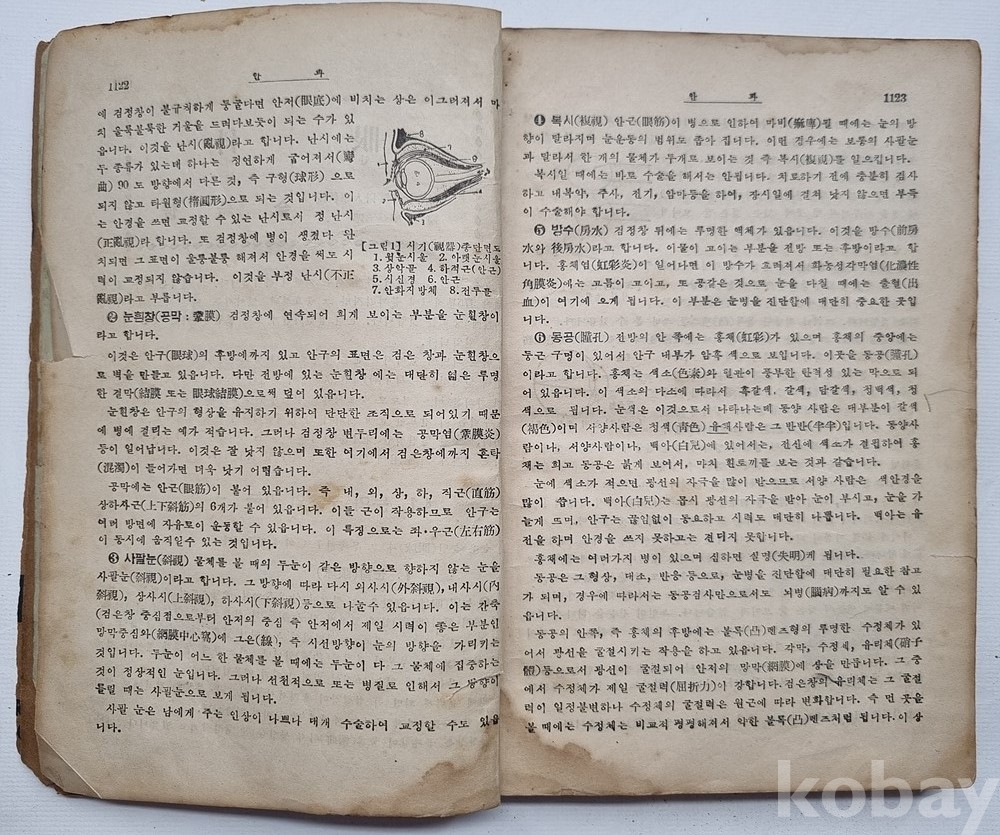 1122
안 과
에 검정창이 불규칙하게 둥굴다면 안저(眼底)에 비치는 상은 이그러져서 마
치 울룩불룩한 거울을 드려다보듯이 되는 수가 있
읍니다. 이것을 난시(亂視)라고 합니다. 난시에는
두 종류가 있는데 하나는 정연하게 굽어져서(彎
曲) 90 도 방향에서 다른 것, 즉 구형(球形) 으로
되지 않고 타원형(楕圓形)으로 되는 것입니다. 이
는 안경을 쓰면 교정할 수 있는 난시로서 정 난시
(正亂視)라 합니다. 또 검정창에 병이 생겼다 난
치되면 그 표면이 울룽불룽 해져서 안경을 써도 시
력이 교정되지 않습니다. 이것을 부정 난시(不正
亂視)라고 부릅니다.
[그림1] 시기(視器)종단면도
1. 윗눈시울 2. 아랫눈시울
3. 상악골 4. 하직근(안근)
5. 시신경 6. 안근
7. 안와지방체 8. 전두골
❷ 눈흰창(공막:鞏膜) 검정창에 연속되어 희게 보이는 부분을 눈흰창이
라고 합니다.
이것은 안구(眼球)의 후방에까지 있고 안구의 표면은 검은 창과 눈흰창으
로 벽을 만들고 있읍니다. 다만 전방에 있는 눈흰창 에는 대단히 엷은 투명
한 결막(結膜 또는 眼球結膜)으로써 덮이 있읍니다.
눈흰창은 안구의 형상을 유지하기 위하여 단단한 조직으로 되어있기 때문
에 병에 걸리는 예가 적습니다. 그러나 검정창 변두리에는 공막염(鞏膜炎)
등이 일어납니다. 이것은 잘 낫지 않으며 또한 여기에서 검은창에까지 혼탁
(混濁)이 들어가면 더욱 낫기 어렵습니다.
공막에는 안근(眼筋)이 붙어 있읍니다. 즉 내, 외, 상, 하, 직근(直筋)
상하사근(上下斜筋)의 6개가 붙어 있읍니다. 이들 근이 작용하므로 안구는
여러 방면에 자유로이 운동할 수 있읍니다. 이 특징으로는 좌·우근(左右筋)
이 동시에 움직일수 있는 것입니다.
❸ 사팔눈(斜視) 물체를 볼 때의 두눈이 같은 방향으로 향하지 않는 눈을
사팔눈(斜視)이라고 합니다. 그 방향에 따라 다시 외사시(外斜視), 내사시(內
斜視), 상사시(上斜視), 하사시(下斜視)등으로 나눌수 있읍니다. 이는 간축
(검은창 중심점으로부터 안저의 중심 즉 안저에서 제일 시력이 좋은 부분인
망막중심와(網膜中心窩)에 그은(線), 즉 시선방향이 눈의 방향을 가리키는
것입니다. 두눈이 어느 한 물체를 볼 때에는 두눈이 다 그 물체에 집중하는
것이 정상적인 눈입니다. 그러나 선천적으로 또는 병질로 인해서 그 방향이
틀릴 때는 사팔눈으로 보게 됩니다.
사팔 눈은 남에게 주는 인상이 나쁘나 대개 수술하여 교정할 수도 있읍
니다.
안 과
1123
❹ 복시(複視) 안근(眼筋)이 병으로 인하여 마비(痲痺)될 때에는 눈의 방
향이 달라지며 눈운동의 범위도 좁아 집니다. 이런 경우에는 보통의 사팔눈
과 달라서 한 개의 물체가 두개로 보이는 것 즉 복시(複視)를 일으킵니다.
복시일 때에는 바로 수술을 해서는 안됩니다. 치료하기 전에 충분히 검사
하고 내복약, 주사, 전기, 암마등을 하여, 장시일에 걸쳐 낫지 않으면 부득
이 수술해야 합니다.
❺ 방수(房水) 검정창 뒤에는 투명한 액체가 있읍니다. 이것을 방수(前房
水와 後房水)라고 합니다. 이물이 고이는 부분을 전방 또는 후방이라고 합
니다. 홍채염(虹彩炎)이 일어나면 이 방수가 흐려져서 화농성각막염(化濃性
角膜炎)에는 고름이 고이고, 또 공같은 것으로 눈을 다칠 때에는 출혈(出
血)이 여기에 오게 됩니다. 이 부분은 눈병을 진단함에 대단히 중요한 곳입
니다.
❻ 동공(瞳孔) 전방의 안 쪽에는 홍채(虹彩)가 있으며 홍채의 중앙에는
둥근 구멍이 있어서 안구 내부가 암흑 색으로 보입니다. 이곳을 동공(瞳孔)
이라고 합니다. 홍채는 색소(色素)와 혈관이 풍부한 탄력성 있는 막으로 되
어 있읍니다. 이 색소의 다소에 따라서 흑갈색, 갈색, 담갈색, 청백색, 청
색으로 됩니다. 눈색은 이것으로서 나타나는데 동양 사람은 대부분이 갈색
(褐色)이며 서양사람은 청색(靑色) 유색사람은 그 반반(半半)입니다. 동양사
람이나, 서양사람이나, 백아(白兒)에 있어서는, 전신에 색소가 결핍하여 홍
채는 희고 동공은 붉게 보여서, 마치 흰토끼를 보는 것과 같습니다.
눈에 색소가 적으면 광선의 자극을 많이 받으므로 서양 사람은 색안경을
많이 씁니다. 백아(白兒)는 몹시 광선의 자극을 받아 눈이 부시고, 눈을 가
늘게 뜨며, 안구는 끊임없이 동요하고 시력도 대단히 나쁩니다. 백아는 유
전을 하며 안경을 쓰지 못하고는 견디지 못합니다.
홍채에는 여러가지 병이 있으며 심하면 실명(失明)케 됩니다.
동공은 그 형상, 대소, 반응 등으로, 눈병을 진단함에 대단히 필요한 참고
가 되며, 경우에 따라서는 동공검사만으로서도 뇌병(腦病)까지도 알 수 있
읍니다.
동공의 안쪽, 즉 홍채의 후방에는 볼록(凸)렌즈형의 투명한 수정체가 있
어서 광선을 굴절시키는 작용을 하고 있읍니다. 각막, 수정체, 유리체(硝子
體)등으로서 광선이 굴절되어 안저의 망막(網膜)에 상을 만듭니다. 그 중
에서 수정체가 제일 굴절력(屈折力)이 강합니다. 검은창의 유리체는 그 굴절
력이 일정불변하나 수정체의 굴절력은 원근에 따라 변화합니다. 즉 먼 곳을
볼 때에는 수정체는 비교적 평평해져서 약한 볼록(凸)렌즈처럼 됩니다. 이 상
kobay